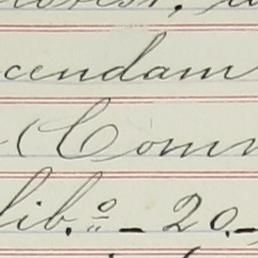 cendam
(Comm
lib.º - 20.-